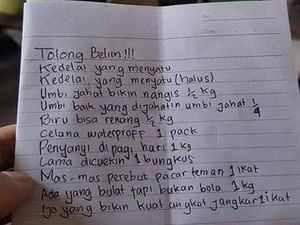 No.
Date.
Tolong Beliin!!!
Kedelai yang menyatu
Kedelai yang menyatu (halus)
Umbi jahat bikin nangis ½ kg
Umbi baik yang dijahatin umbi jahat ¼
Biru bisa renang ½ kg
Celana waterproff 1 pack
Penyanyi di pagi hari 1 kg
Lama dicuekin 1 bungkus
Mas-mas perebut pacar teman 1 ikat
Ada yang bulat tapi bukan bola 1 kg
Ijo yang bikin kuat angkat jangkar 1 ikat